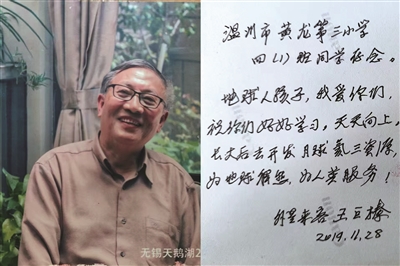 无锡天鹅湖2
温州市黄龙第三小学
四(1)班同学存念。
地球人孩子,我爱你们,
祝你们好好学习,天天向上,
长大后去开发月球氦三资源,
为地球解热,为人类服务!
外星来客
2019.11.28